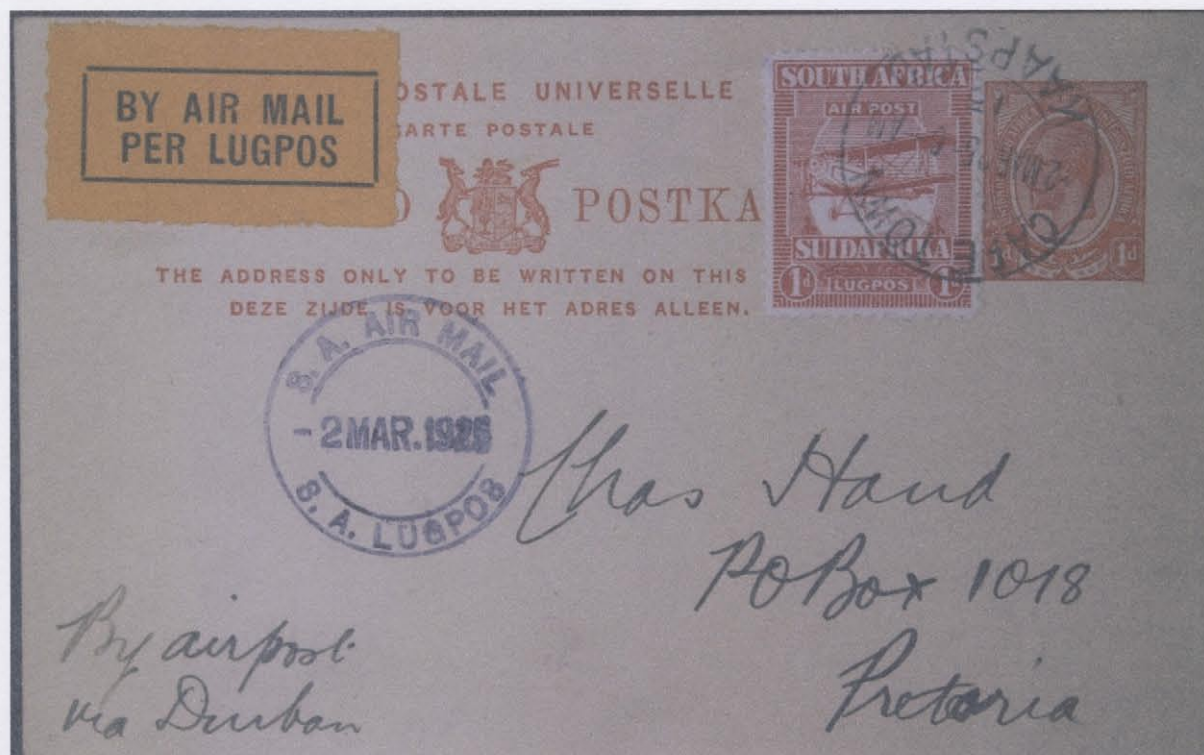 BY AIR MAIL
PER LUGPOS
OSTALE UNIVERSELLE
CARTE POSTALE
O POSTKA
THE ADDRESS ONLY TO BE WRITTEN ON THIS
DEZE ZIJDE IS VOOR HET ADRES ALLEEN.
SOUTH AFRICA
AIR POST
SUIDAFRIKA
1d LUGPOST 1d
1d
CAPE TOWN
KAAPSTAD
S. A. AIR MAIL
-2 MAR. 1925
S. A. LUGPOS
Chas Hand
PO Box 1018
Pretoria
By airpost
via Durban